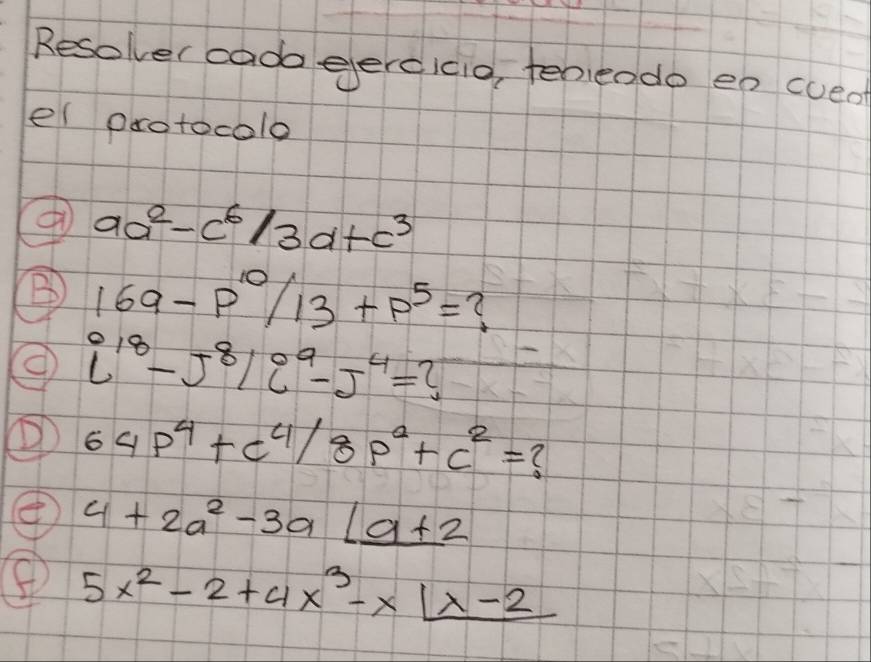 Resolver cada ejercicio, teniendo en cuent
el protocolo
a 9a² - c⁶ / 3a + c³
B 169 - p¹⁰ / 13 + p⁵ = ?
C i¹⁸ - J⁸ / i⁹ - J⁴ = ?
D 64p⁴ + c⁴ / 8p² + c² = ?
e 4 + 2a² - 3a |a + 2
f 5x² - 2 + 4x³ - x |x - 2